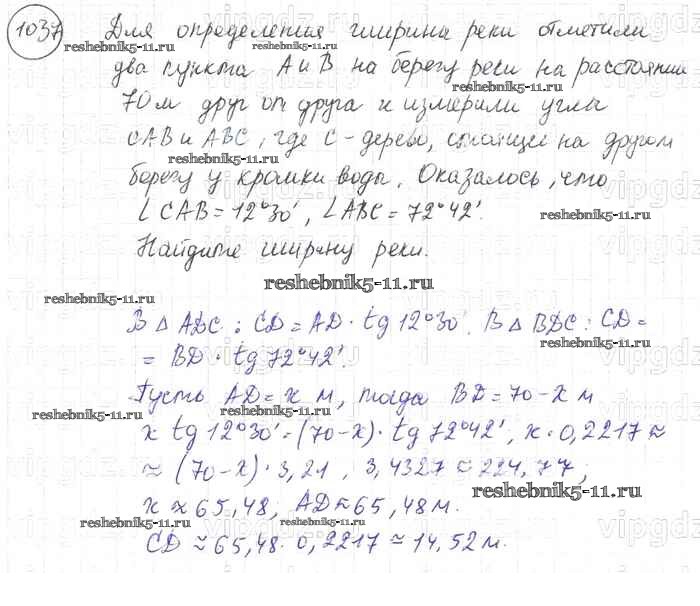 1037 Для определения ширины реки отметили
reshebnik5-11.ru
два пункта А и В на берегу реки на расстоянии
reshebnik5-11.ru
70 м друг от друга и измерили углы
САВ и АВС, где С - дерево, стоящее на другом
reshebnik5-11.ru
берегу у кромки воды. Оказалось, что
∠ САВ = 12°30', ∠ АВС = 72°42'.
reshebnik5-11.ru
Найдите ширину реки.
reshebnik5-11.ru
reshebnik5-11.ru
В Δ ADC : CD = AD · tg 12°30'. В Δ BDC : CD =
reshebnik5-11.ru
= BD · tg 72°42'.
Пусть AD = x м, тогда BD = 70 - x м
reshebnik5-11.ru
reshebnik5-11.ru
x tg 12°30' = (70 - x) · tg 72°42', x · 0,2217 ≈
≈ (70 - x) · 3,21, 3,4327 ≈ 224,77;
reshebnik5-11.ru
x ≈ 65,48, AD ≈ 65,48 м.
reshebnik5-11.ru
reshebnik5-11.ru
CD ≈ 65,48 · 0,2217 ≈ 14,52 м.